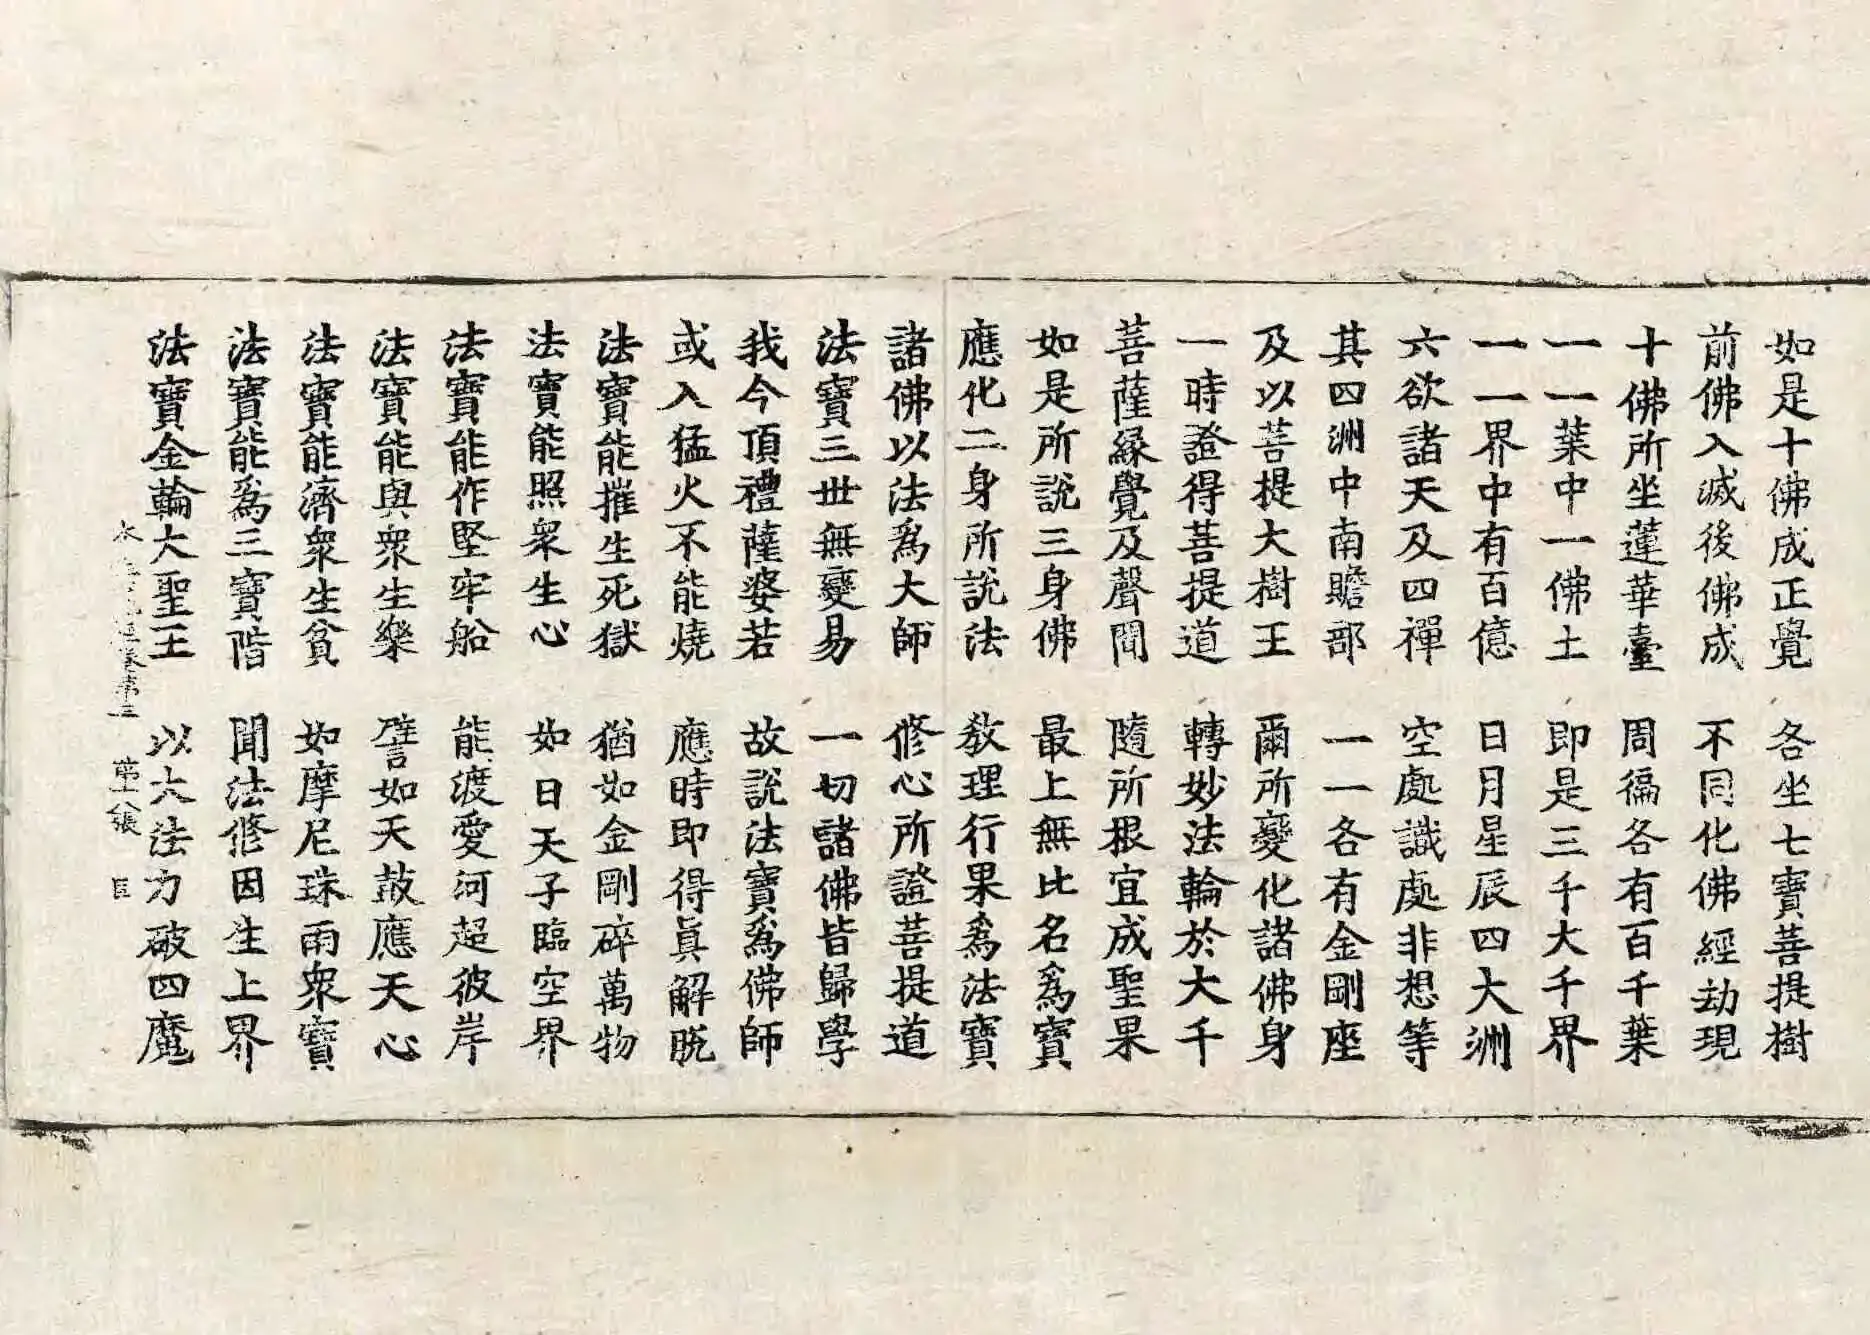 如是十佛成正覺　各坐七寶菩提樹
前佛入滅後佛成　不同化佛經劫現
十佛所坐蓮華臺　周徧各有百千葉
一一葉中一佛土　即是三千大千界
一一界中有百億　日月星辰四大洲
六欲諸天及四禪　空處識處非想等
其四洲中南贍部　一一各有金剛座
及以菩提大樹王　爾所變化諸佛身
一時證得菩提道　轉妙法輪於大千
菩薩緣覺及聲聞　隨所根宜成聖果
如是所說三身佛　最上無比名爲寶
應化二身所說法　教理行果爲法寶
諸佛以法爲大師　修心所證菩提道
法寶三世無變易　一切諸佛皆歸學
我今頂禮薩婆若　故說法寶爲佛師
或入猛火不能燒　應時即得眞解脫
法寶能摧生死獄　猶如金剛碎萬物
法寶能照衆生心　如日天子臨空界
法寶能作堅牢船　能渡愛河超彼岸
法寶能與衆生樂　譬如天鼓應天心
法寶能濟衆生貧　如摩尼珠雨衆寶
法寶能爲三寶階　聞法修因生上界
法寶金輪大聖王　以大法力破四魔
卷第三　張